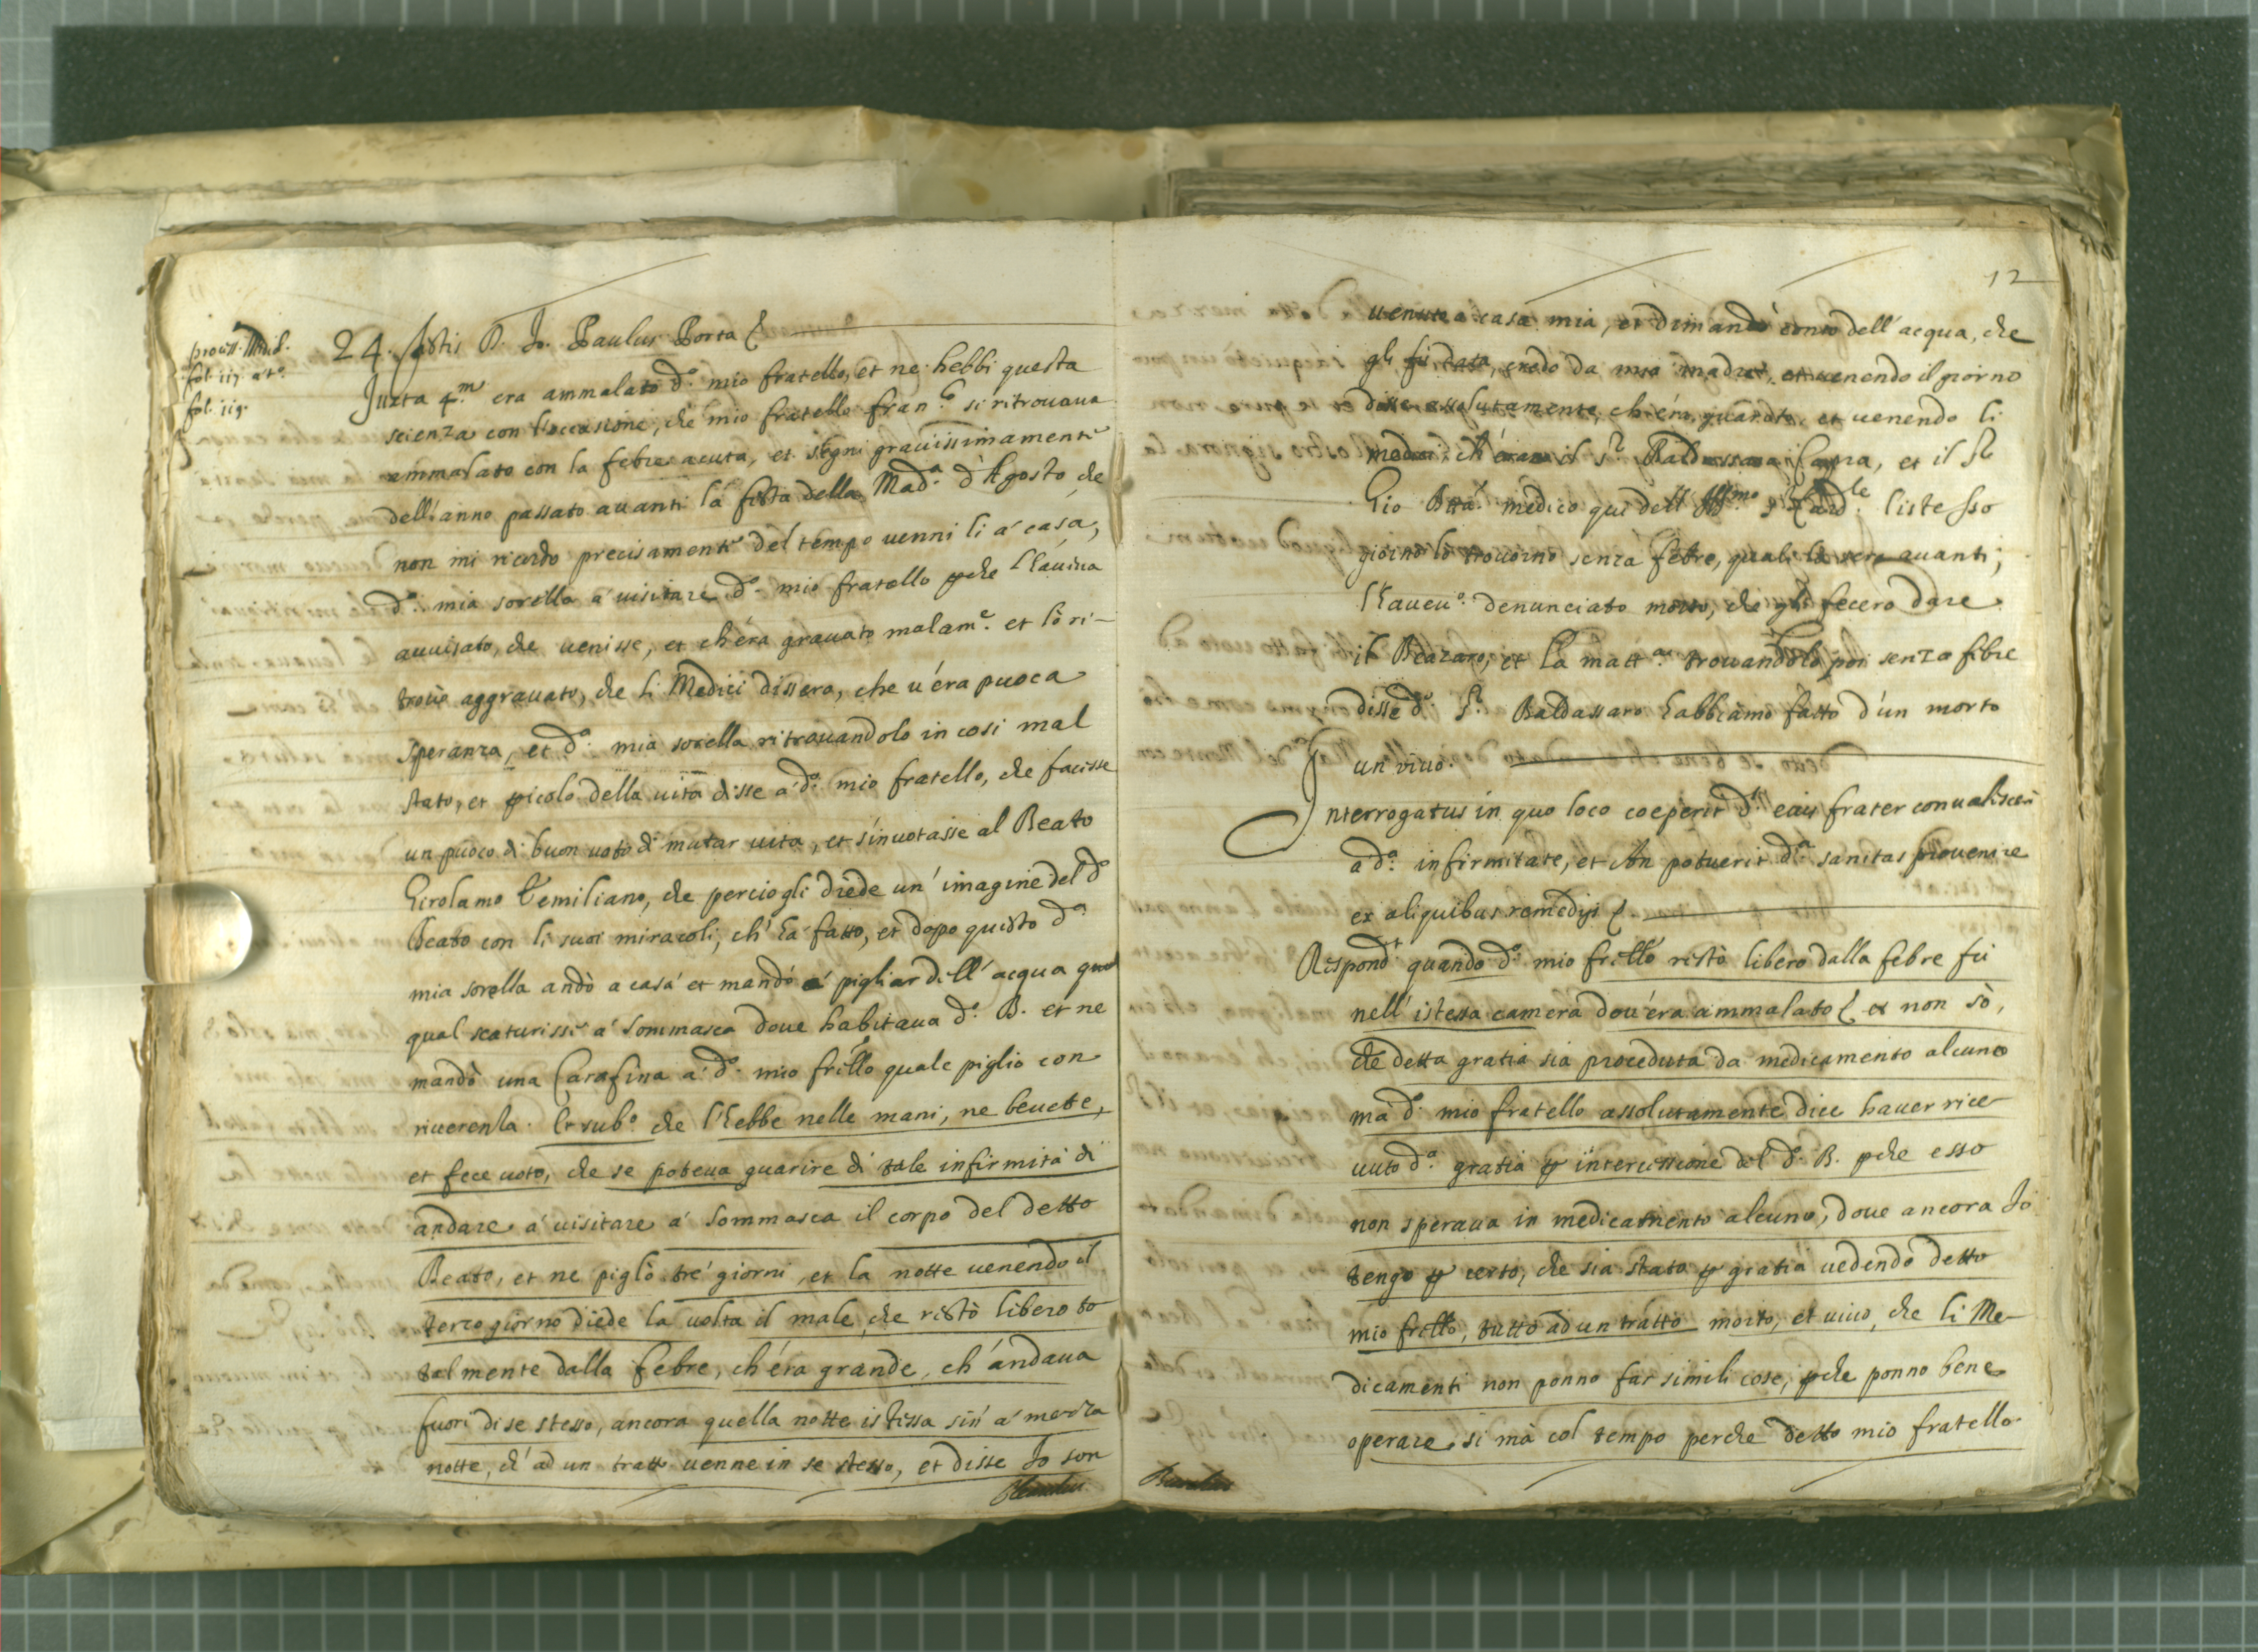 process. Mediol.
fol. 117. a t.o
fol. 119.
24. Testis D. Jo. Paulus Porta &
Juxta 4.m era ammalato d.o mio fratello, et ne hebbi questa
scienza con l'occasione, che mio fratello Fran.o si ritrovava
ammalato con la febre acuta, et segni gravissimamente
dell'anno passato avanti la festa della Mad.a d'Agosto, che
non mi ricordo precisamente del tempo venni li à casa,
d.a mia sorella à visitare d.o mio fratello pche l'haviva
avvisato, che venisse, et ch'éra gravato malam.e et lo ri-
trovò aggravato, che li Medici dissero, che v'éra puoca
speranza, et d.a mia sorella ritrovandolo in cosi mal
stato, et picolo della vita disse à d.o mio fratello, che facisse
un puoco di buon voto di mutar vita, et s'invotasse al Beato
Girolamo Emiliano, che perciò gli diede un'imagine del d.o
Beato con li suoi miracoli, ch'ha fatto, et dopo questo d.a
mia sorella andò a casa et mandó à pigliar dell'acqua qual
qual scaturisse à Sommasca dove habitava d.o B. et ne
mandò una Carafina à d.o mio frello quale pigliò con
riverenza. Et sub.o che l'hebbe nelle mani, ne bevette,
et fece voto, che se poteva guarire di tale infirmità di
andare à visitare à Sommasca il corpo del detto
Beato, et ne pigliò tré giorni, et la notte venendo il
terzo giorno diede la volta il male, che restò libero to-
talmente dalla febre, ch'éra grande, ch'andava
fuori di se stesso, ancora quella notte istessa sin'à mezza
notte, ch'ad un tratto venne in se stesso, et disse Jo son
12
venuto a casa mia, et dimandò conto dell'acqua, che
gli fù data, credo da mia madre, et venendo il giorno
disse assolutamente, ch'éra guarito, et venendo li
medici ch'érano il S.r Baldassaro Capra, et il S.r
Gio Btta medico qui dell' Ill.mo S. Card.le l'istesso
giorno lo trovorno senza febre, quali la sera avanti,
l'havev.o denunciato morto, che gli fecero dare
il Beazaro, et la matt.a trovandolo poi senza febre
disse d.o S.r Baldassaro habbiamo fatto d'un morto
un vivo.
Interrogatus in quo loco coeperit d.s eius frater convalescere
a d.a infirmitate, et An potuerit d.a sanitas provenire
ex aliquibus remedijs &
Respond.t quando d.o mio frello restò libero dalla febre fù
nell'istessa camera dov'éra ammalato & et non sò,
che detta gratia sia proceduta da medicamento alcuno
mà d.o mio fratello assolutamente dice haver rice-
vuto d.a gratia p intercessione del d.o B. pche esso
non sperava in medicamento alcuno, dove ancora Jo
tengo p certo, che sia stata p gratia vedendo detto
mio frello, tutto ad un tratto morto, et vivo, che li Me-
dicamenti non ponno far simili cose, pche ponno bene
operare si mà col tempo perche detto mio fratello